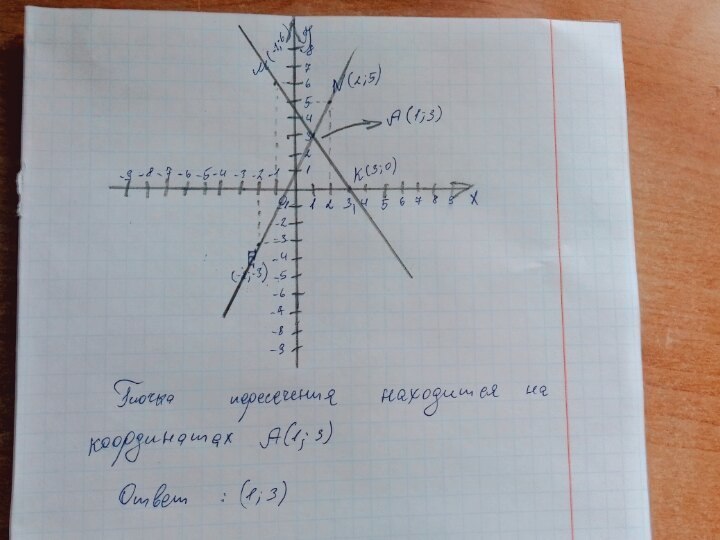 M(-1;6)
y
9
8
7
6
5
4
2
1
N(2;5)
A(1;3)
K(3;0)
-9 -8 -7 -6 -5 -4 -3 -2 -1
1 2 3 4 5 6 7 8 9 x
-2
-3
-4
-5
-6
-8
-9
(-2;-3)
Точка пересечения находится на
координатах A(1;3)
Ответ : (1;3)